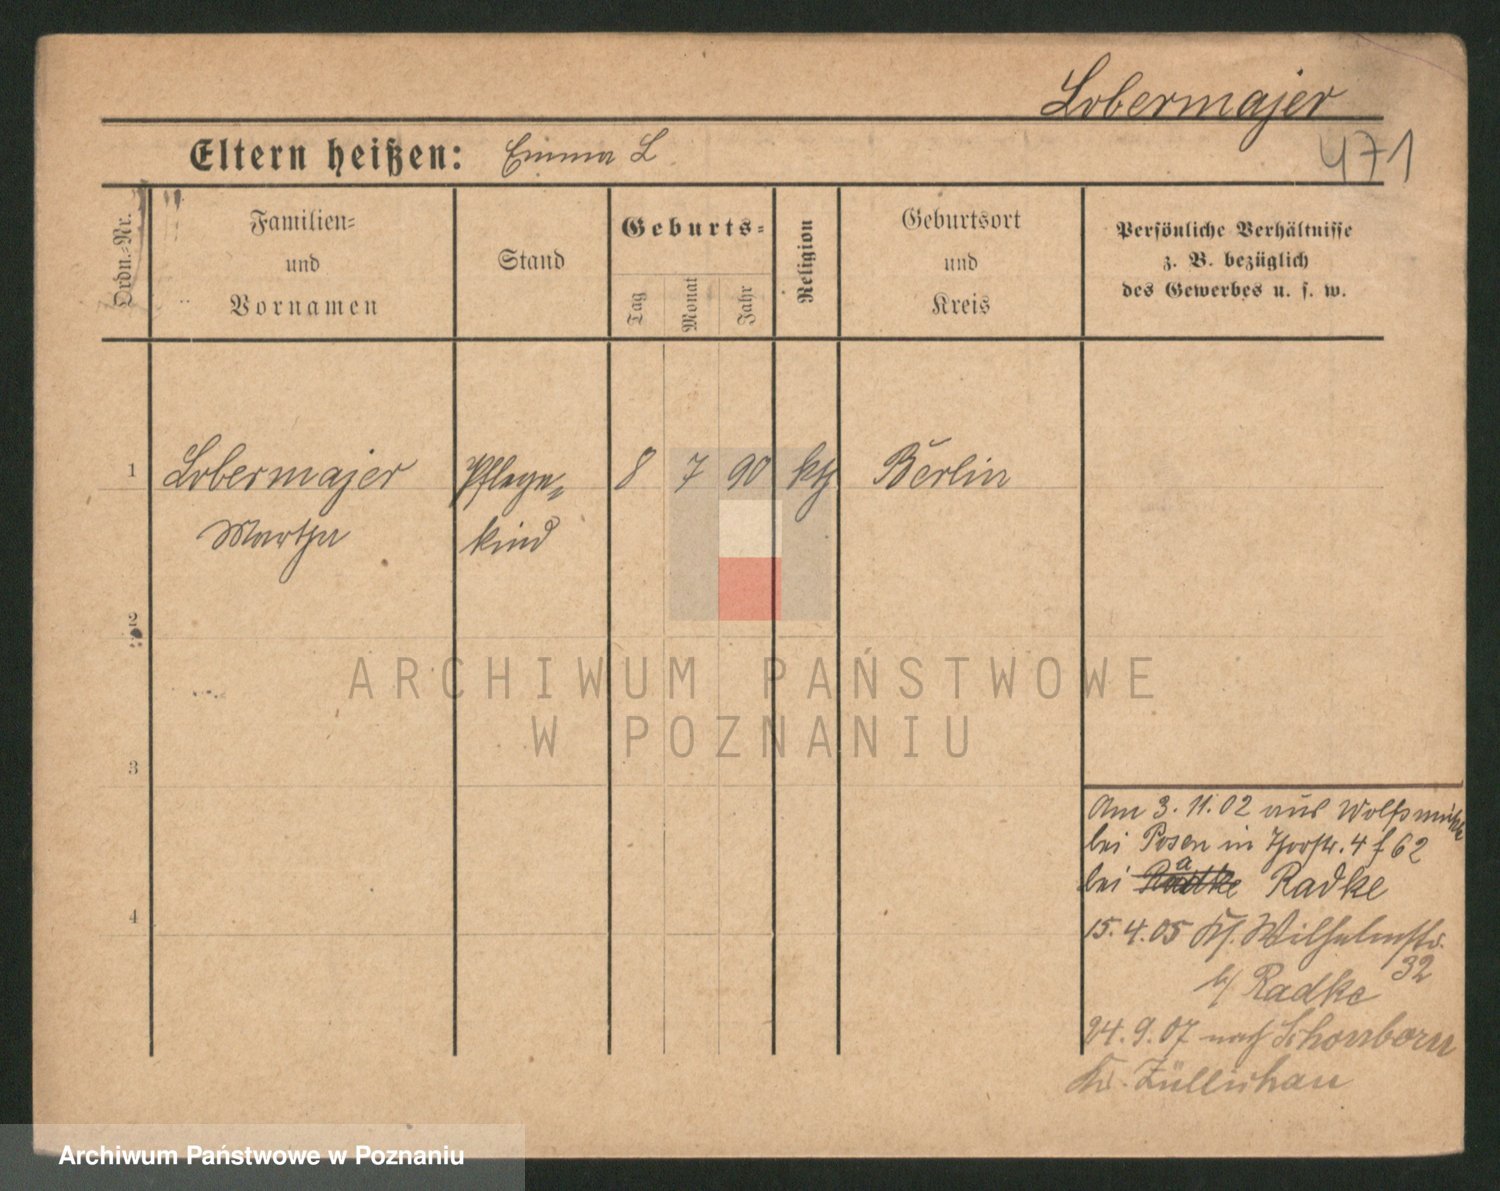 Lobermajer
471
Eltern heißen: Emma L
Ordn.-Nr.
Familien-
und
Vornamen
Stand
Geburts-
Tag
Monat
Jahr
Religion
Geburtsort
und
Kreis
Persönliche Verhältnisse
z. B. bezüglich
des Gewerbes u. s. w.
1 Lobermajer Pflege- 8 7 90 kth Berlin
Martha kind
2
3
4
Am 3. 11. 02 aus Wolfsmühle
bei Posen in Thorstr. 4 f 62
bei Radke
15. 4. 05 Kl. Wilhelmstr.
32
b/ Radke
24. 9. 07 nach Schonborn
Kr. Züllichau
ARCHIWUM PAŃSTWOWE
W POZNANIU
Archiwum Państwowe w Poznaniu